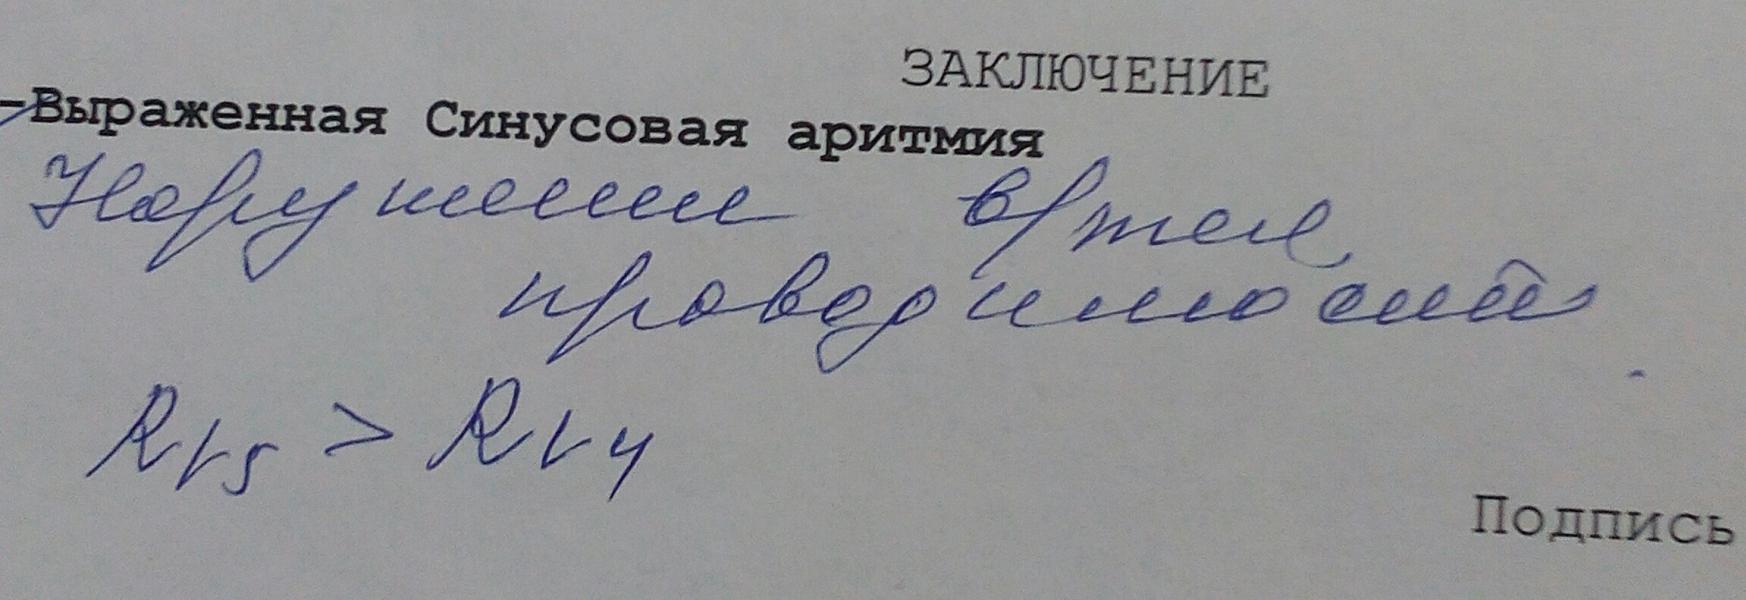 ЗАКЛЮЧЕНИЕ
-Выраженная Синусовая аритмия
Нарушение в/жел
проводимости
RV5 > RV4
Подпись